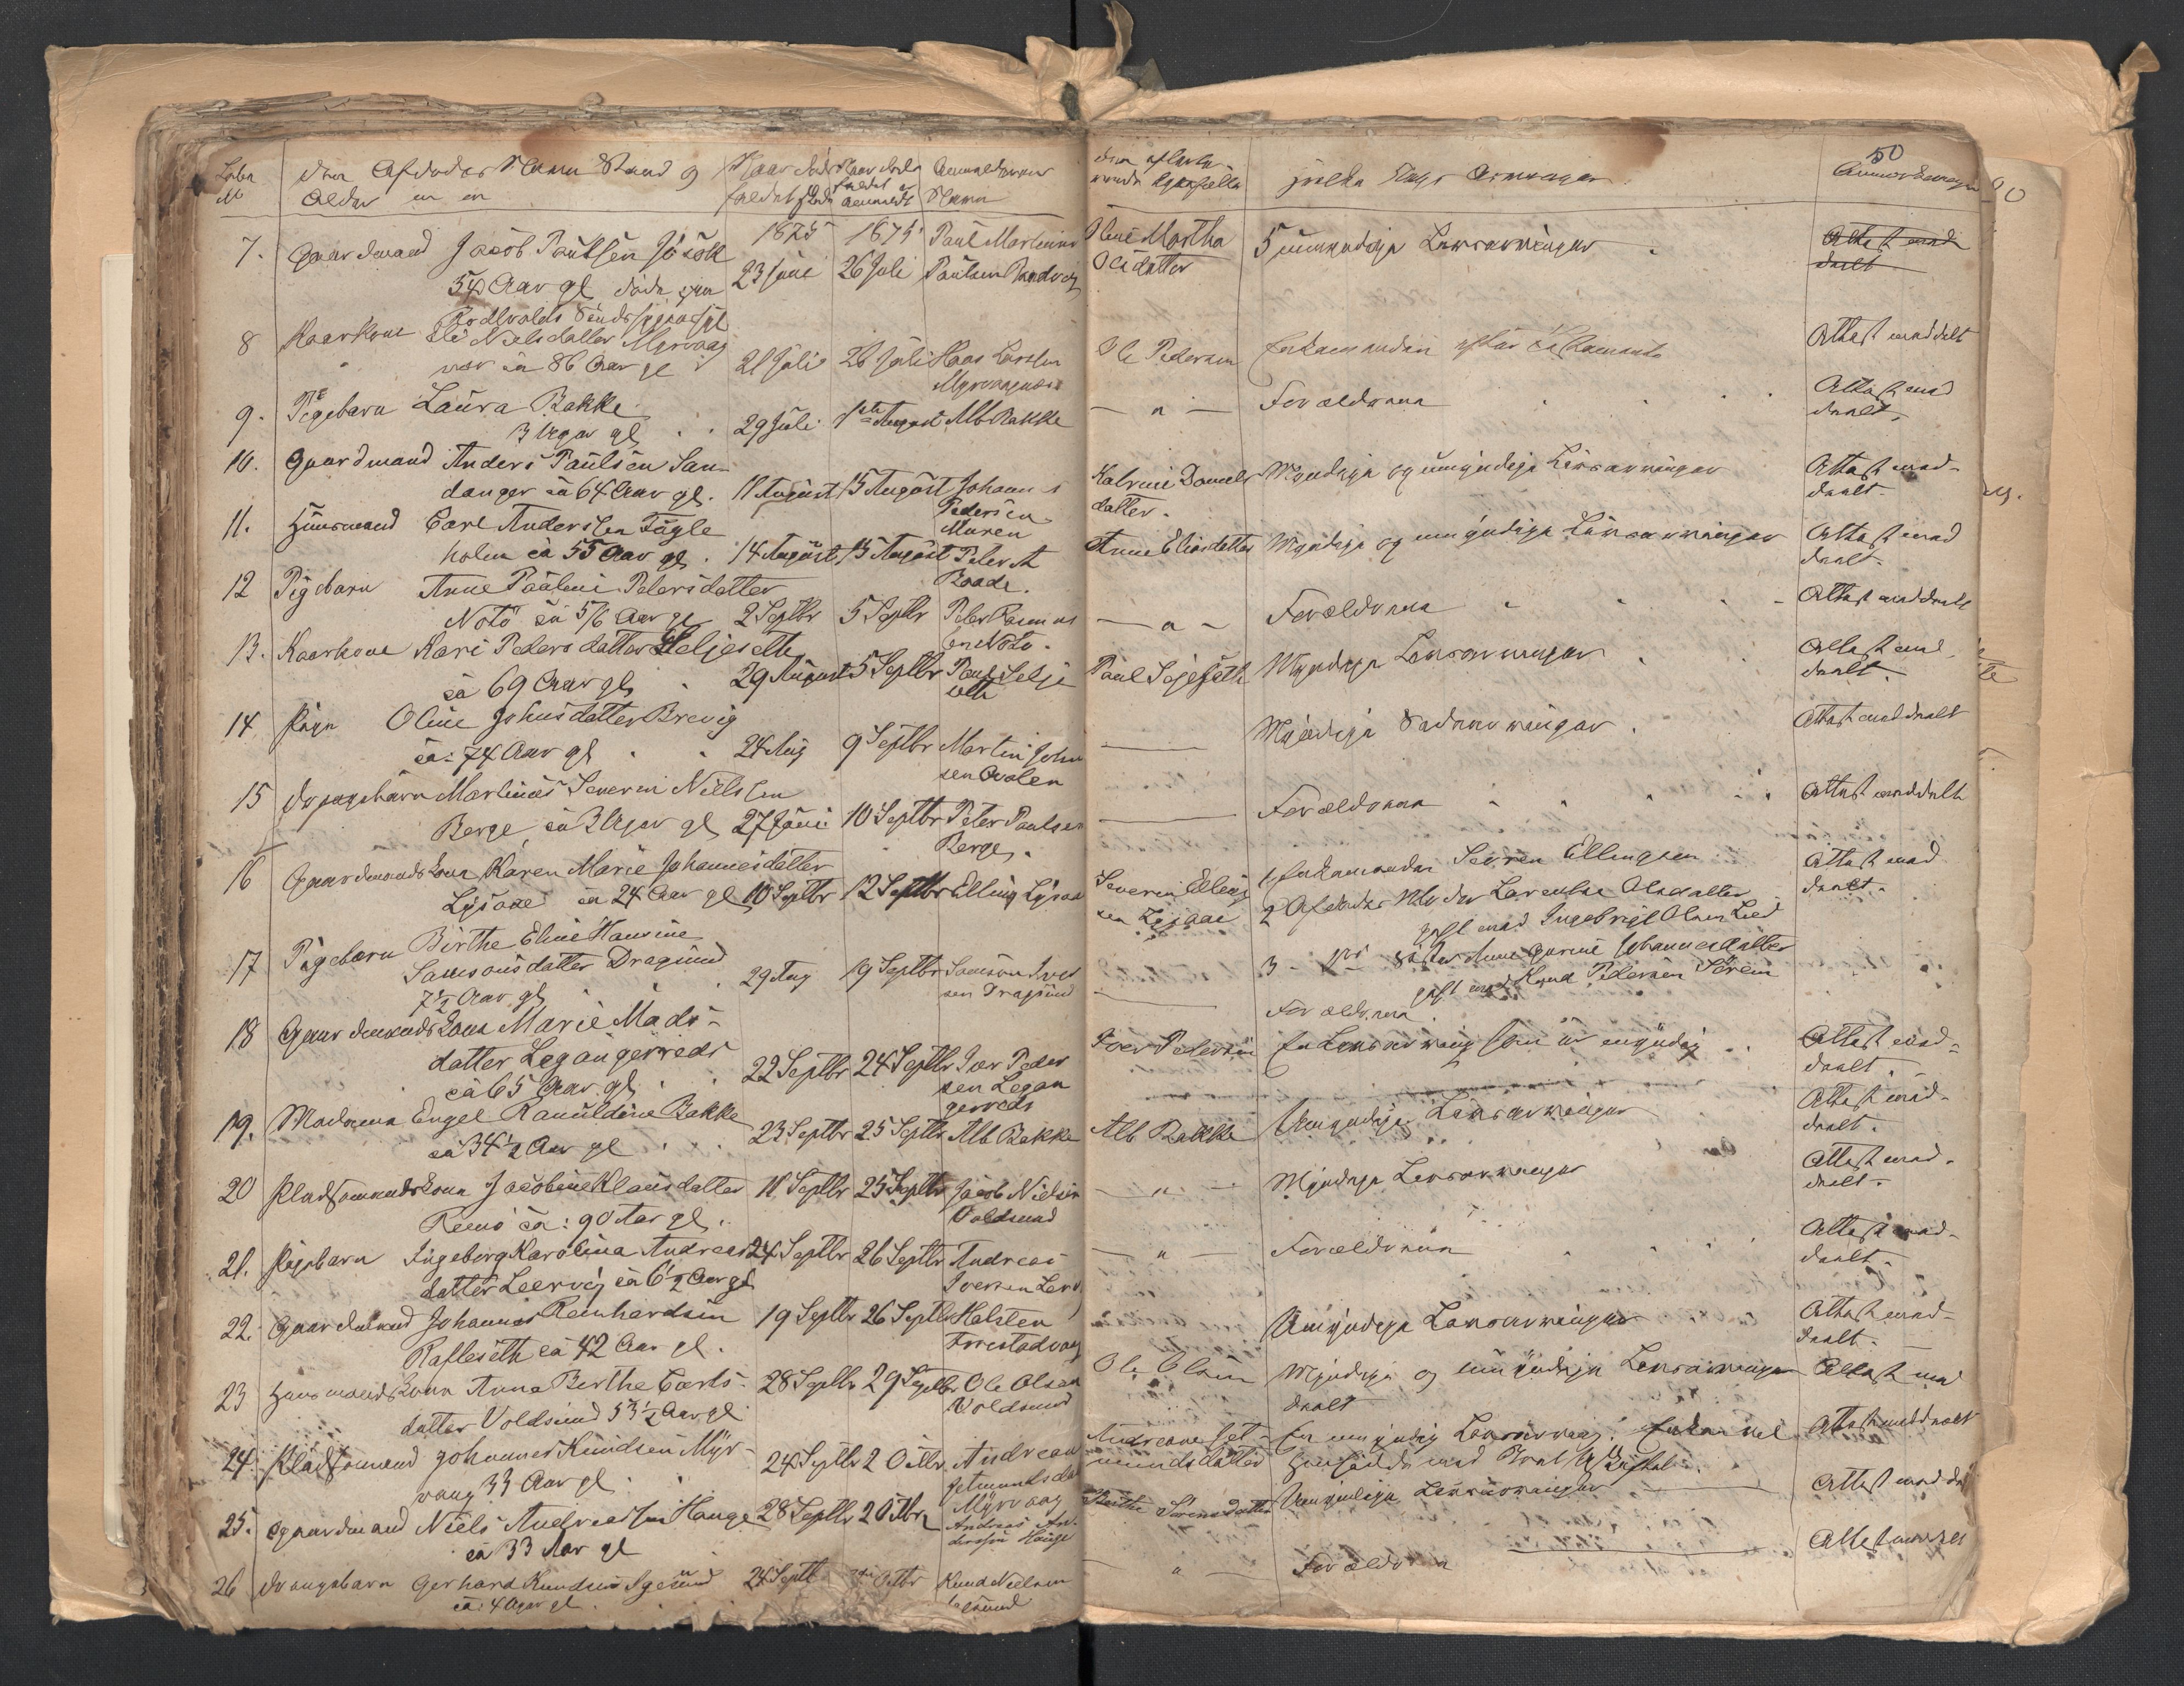 Løbe
No
den Afdødes Navn Stand og
Alder
Naar døds
faldet
Naar døds
faldet er
anmeldt
Anmelderens
Navn
den efterle-
vende Ægtefælle
50
Anmærkninger
1875 1875
7. Gaardmand Jacob Paulsen
54 Aar gl døde paa
23 Juni 26 Juli Paul Martinus
Paulsen
Oline Martha
Olsdatter
5 umyndige Livsarvinger
Attest med
deelt
8 Kaarkone Eli Nielsdatter Myrvaag
86 Aar gl 21 Juli 26 Juli Hans Larssen
Myrvaagnæs
Ole Pedersen Enkemanden efter Testamente Attest meddelt
9. Pigebarn Laura Bakke
3 Uger gl 29 Juli 1ste August Alb Bakke
— " — Forældrene Attest med
deelt.
10. Gaardmand Anders Paulsen San-
danger ca 64 Aar gl. 11 August 15 August Johannes
Pedersen
Muren
Katrine Daniels
datter. Myndige og umyndige Livsarvinger Attest med-
deelt.
11. Huusmand Carl Anderssen Fugle
holm ca 55 Aar gl. 14 August 15 August Peter A
Raade.
Anne Eliasdatter Myndige og umyndige Livsarvinger Attest med
deelt.
12 Pigebarn Anne Pauline Petersdatter
Notø ca 5/6 Aar gl 2 Septbr 5 Septbr Peter Rasmus
sen Notø.
— " — Forældrene Attest meddeelt
13. Kaarkone Kari Pedersdatter Seljeseth
ca 69 Aar gl 29 August 5 Septbr Paul Selje
seth
Paul Seljeseth Myndige Livsarvinger Attest med
deelt.
14 Pige Oline Johnsdatter Brevig
ca: 74 Aar gl 24 Aug 9 Septbr Martin John
sen Qvalen
— Myndige Sødarvinger Attest meddeelt
15 Drengebarn Martinus Severin Nielssen
Berge ca 3 Uger gl 27 Juni 10 Septbr Peter Paulsen
Berge.
— Forældrene Attest meddelt
16 Gaardmandskone Karen Marie Johannesdatter
ca 24 Aar gl 10 Septbr 12 Septbr Elling
Severin Elling
sen
1 Enkemanden Severin Ellingsen
2 Afdødes Moder Lorentse Olsdatter
gift med Ingebrigt Olsen Lied
3 - Søster Anne Gurine Johannesdatter
gift med Knud Pedersen
Attest med
deelt.
17 Pigebarn Birthe Eline Hansine
Samsonsdatter Dragsund
7½ Aar gl 29 Aug 19 Septbr Samson Iver
sen Dragsund
— Forældrene
18 Gaardmandskone Marie Mads-
datter Legangerreds
ca 65 Aar gl 22 Septbr 24 Septbr Iver Peder
sen Legan
gerreds
Iver Pedersen En Livsarving som er myndig Attest med-
deelt.
19. Madame Engel Ranildine Bakke
ca 34½ Aar gl 23 Septbr 25 Septbr Alb Bakke
Alb Bakke Umyndige Livsarvinger Attest med-
deelt.
20 Pladsmandskone Jacobine Klausdatter
Remø ca: 90 Aar gl. 11 Septbr 25 Septbr Jacob Nielsen
Voldsund
— " — Myndige Livsarvinger Attest med-
deelt.
21. Pigebarn Ingeborg Karolina Andreas
datter Leervig ca 6½ Aar gl 24 Septbr 26 Septbr Andreas
Iversen Lerv
— " — Forældrene Attest med-
deelt.
22. Gaardmand Johannes Reinhardsen
Rafteseth ca 42 Aar gl. 19 Septbr 26 Septbr Halsten
Frrestadvaag
Umyndige Livsarvinger Attest med-
deelt.
23 Huusmandskone Anna Berthe Carls-
datter Voldsund 53½ Aar gl 28 Septbr 29 Septbr Ole Olsen
Voldsund
Ole Olsen Myndige og umyndige Livsarvinger Attest med
deelt
24. Pladsmand Johannes Knudsen Myr-
vaag 33 Aar gl 24 Septbr 2 Octbr Andreane
Jetmundsdat
Myrvaag
Andreane Jet-
mundsdatter En umyndig Livsarving. Attest meddeelt
25. Gaardmand Niels Andreassen Hauge
ca 33 Aar gl 28 Septbr 2 Octbr Andreas An-
derssen Hauge
Berthe Sørensdatter Umyndige Livsarvinger Attest meddel
26 Drengebarn Gerhard Knudsen Igesund
ca: 4 Aar gl 24 Septb Octbr Knud Nielsen
Igesund
" Forældrene Attest